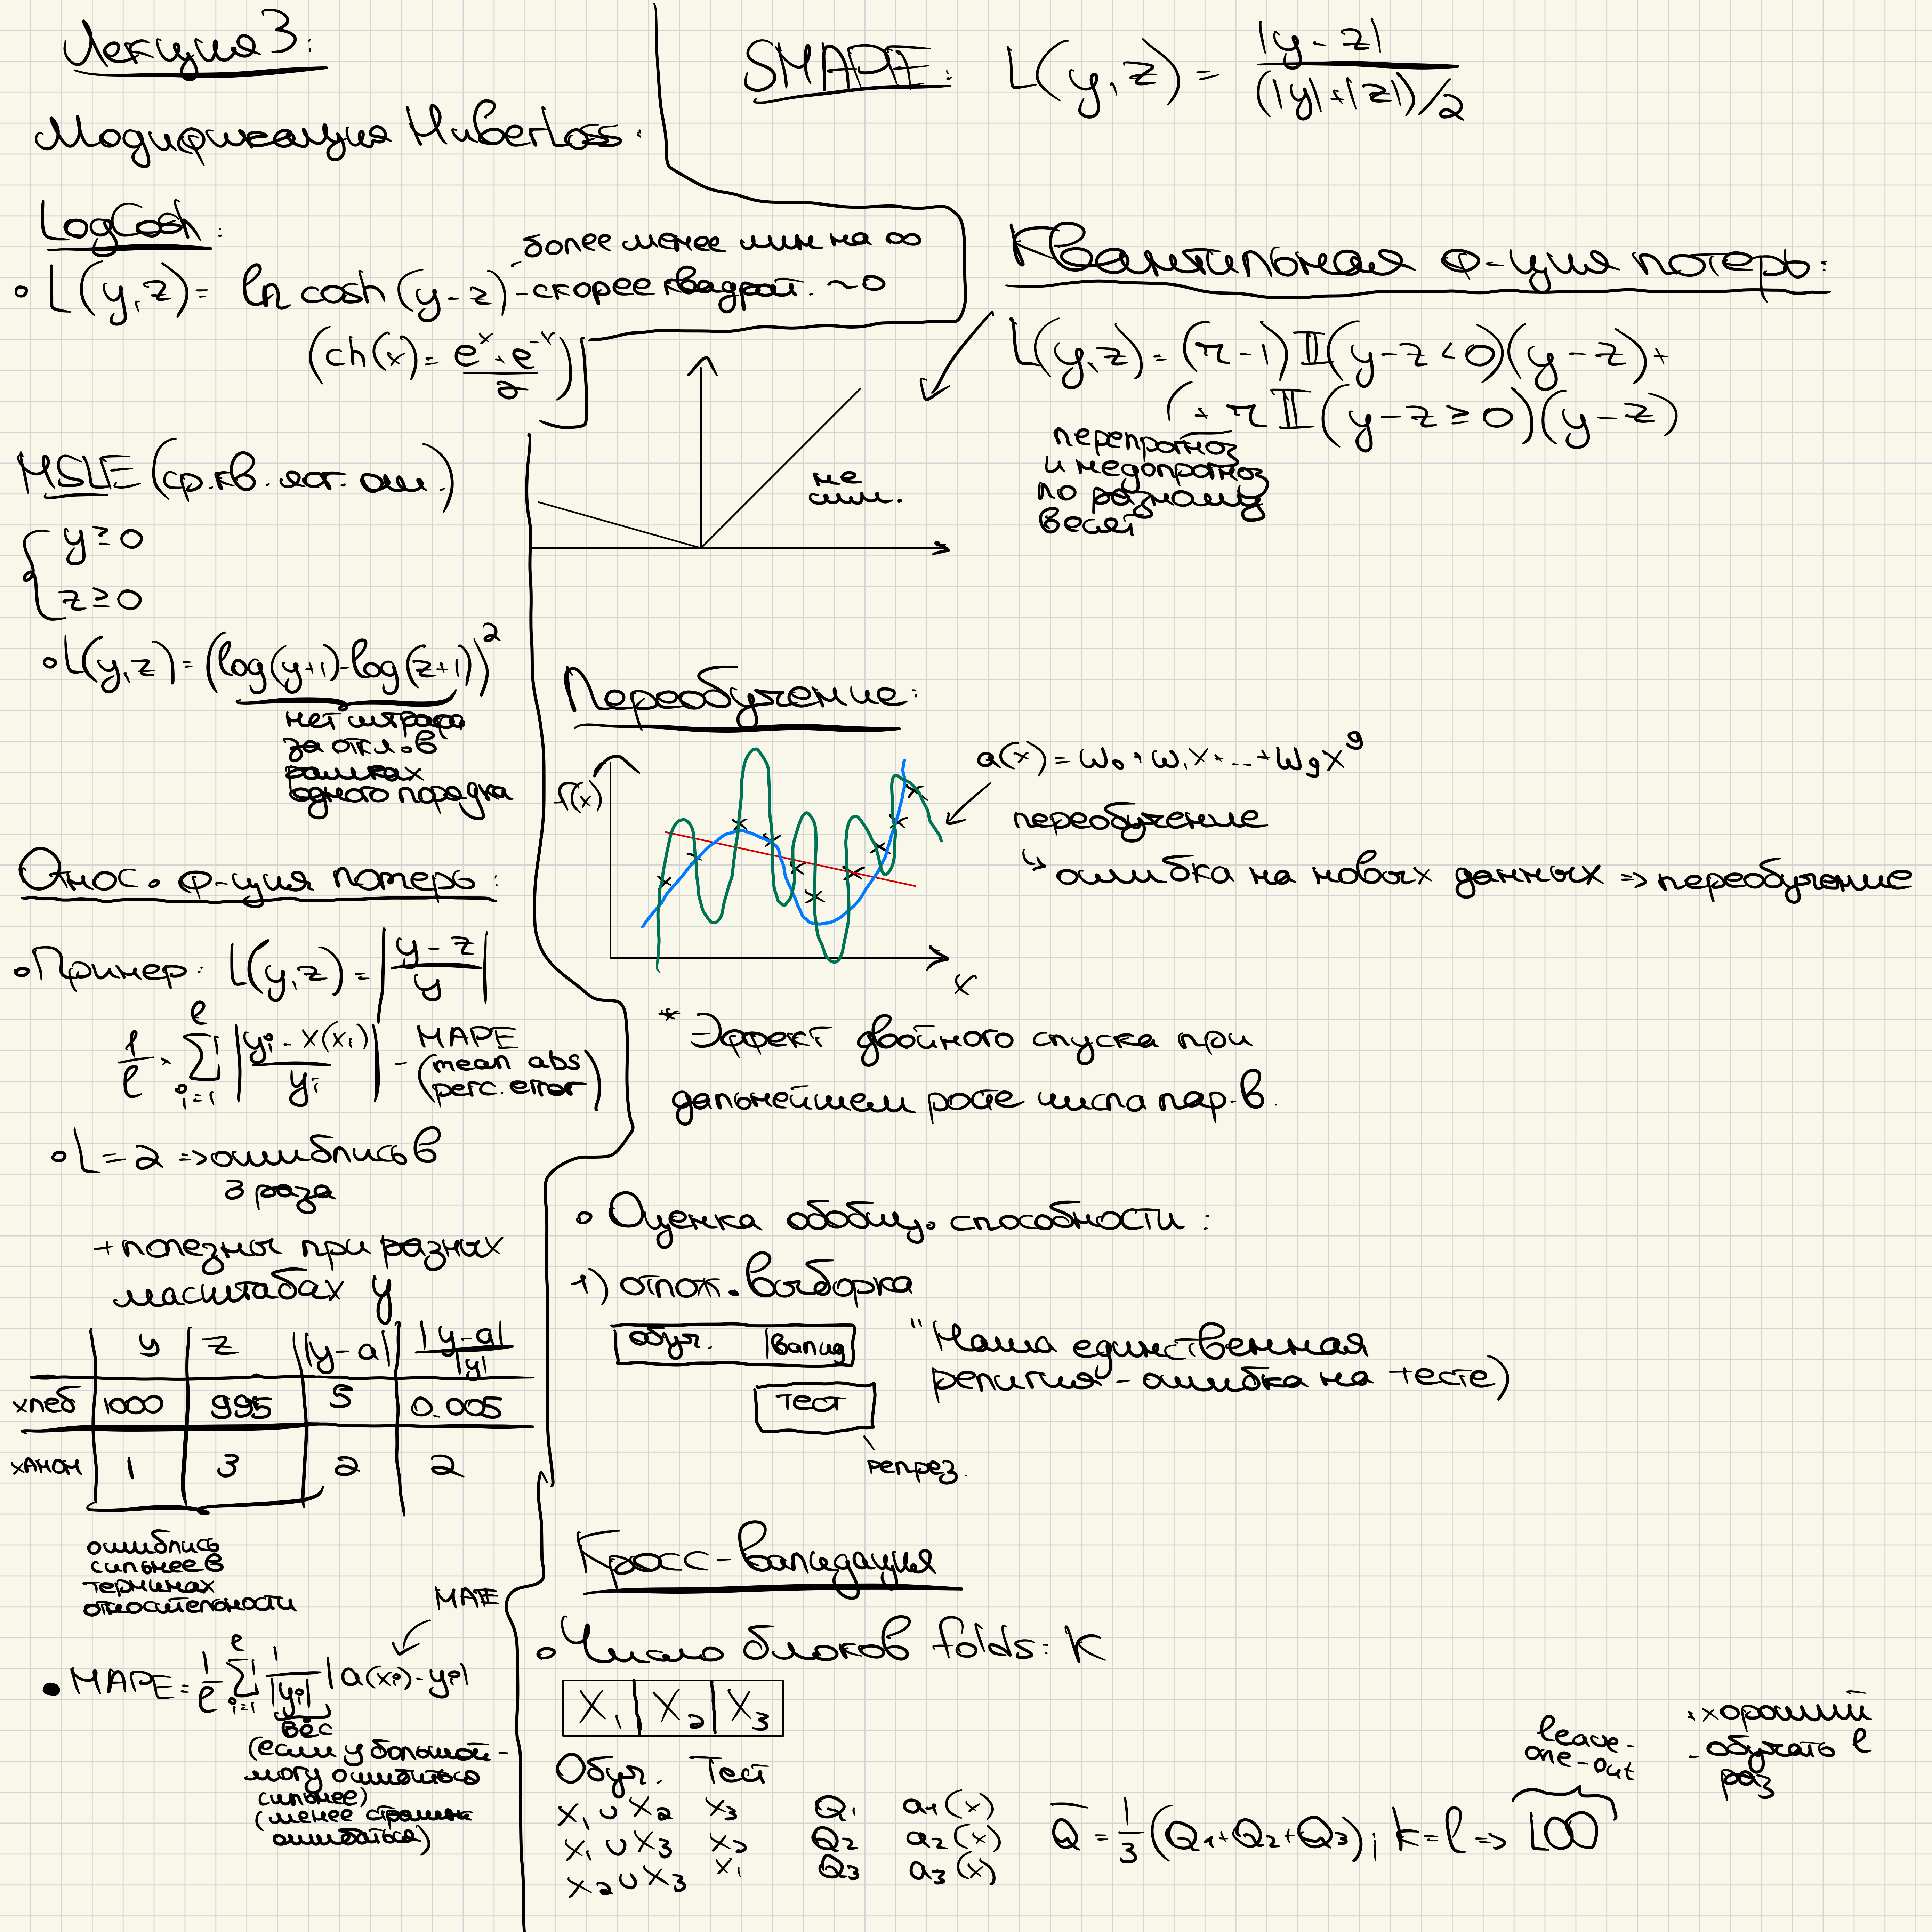 Лекция 3:
Модификация HuberLoss:
LogCosh:
• L(y,z) = ln cosh(y-z)
- более менее лин на ∞
- скорее квадрат. ~0
(ch(x) = (e^x + e^-x)/2)
MSLE (ср.кв. лог. ош.)
{ y ≥ 0
z ≥ 0
• L(y,z) = (log(y+1) - log(z+1))^2
нет штрафа
за откл. в
рамках
одного порядка
Относ. ф-ция потерь:
• Пример: L(y,z) = |(y-z)/y|
1/ℓ · ∑_{i=1}^{ℓ} |(y_i - x(x_i))/y_i| - MAPE
(mean abs
perc. error)
• L = 2 => ошиблись в
3 раза
+ полезны при разных
масштабах y
y | z | |y-a| | |y-a|/|y|
хлеб | 1000 | 995 | 5 | 0.005
хАмон | 1 | 3 | 2 | 2
ошиблись
сильнее в
терминах
относительности
MAE
• MAPE = 1/ℓ ∑_{i=1}^{ℓ} 1/|y_i| |a(x_i) - y_i|
вес
(если y большой -
могу ошибиться
сильнее)
(менее страшна
ошибаться)
SMAPE: L(y,z) = |y-z| / ((|y|+|z|)/2)
Квантильная ф-ция потерь:
L(y,z) = (τ-1) 𝕀(y-z<0)(y-z) +
(+ τ 𝕀(y-z≥0)(y-z)
перепрогноз
и недопрогноз
по разному
весят
не
сим.
Переобучение:
f(x)
x
a(x) = w₀ + w₁x + ... + w₉x⁹
переобучение
↳ ошибка на новых данных => переобучение
* Эффект двойного спуска при
дальнейшем росте числа пар-в.
• Оценка обобщ. способности:
1) отлож. выборка
обуч. | валид
тест
репрез.
"Наша единственная
религия - ошибка на тесте)
Кросс-валидация
• Число блоков folds: K
X₁ | X₂ | X₃
Обуч. Тест
X₁ ∪ X₂ X₃ Q₁ a₁(x)
X₁ ∪ X₃ X₂ Q₂ a₂(x)
X₂ ∪ X₃ X₁ Q₃ a₃(x)
Q̄ = 1/3 (Q₁+Q₂+Q₃); k = ℓ => LOO
leave-
one-out
+ хороший
- обучать ℓ
раз